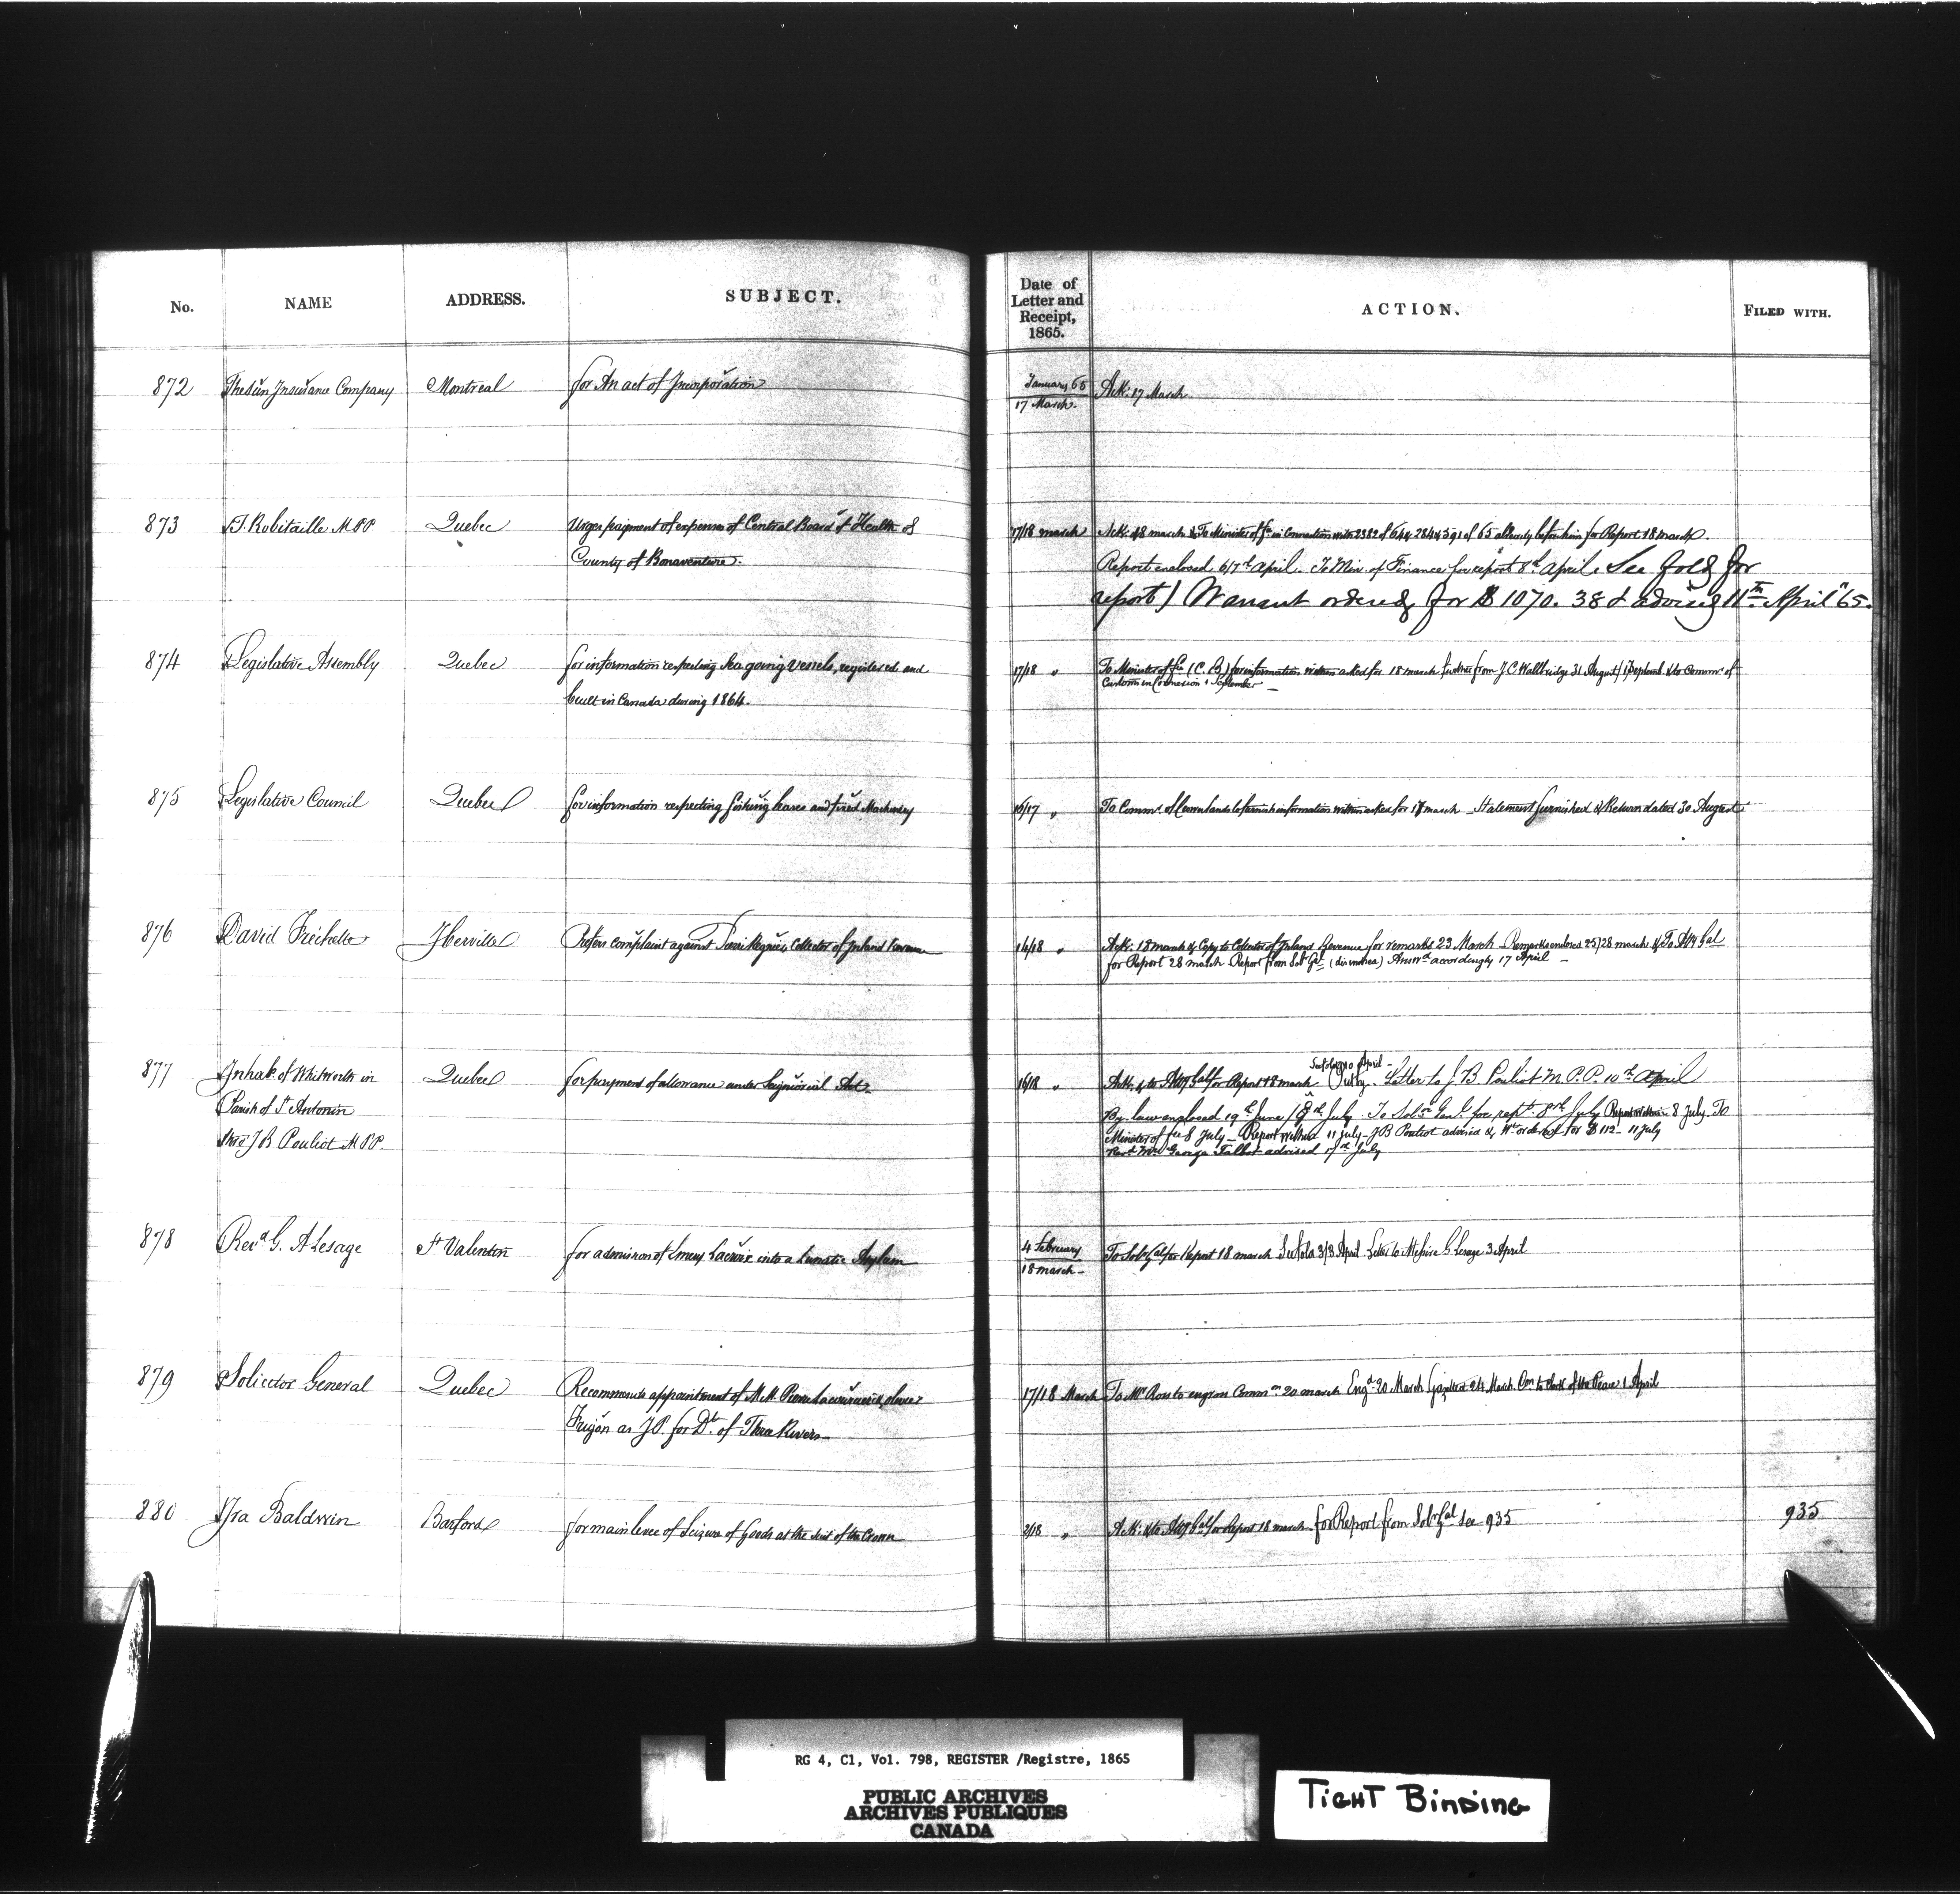 No. NAME ADDRESS. SUBJECT. Date of Letter and Receipt, 1865. ACTION. FILED WITH.
872 The Sun Insurance Company Montreal for An act of Incorporation January 65 / 17 March. Ack: 17 March.
873 T. Robitaille M.P.P Quebec Urges payment of expenses of Central Board of Health of 17/18 march Ack: 18 march & To Minister of in Connection with 2382 of 64 & 284 & 391 of 65 already before him for Report 18 march.
County of Bonaventure. Report enclosed 6/7th april. To Min. of Finance for report 8th april. See fold for
report) Warrant ordered for $1070.38 & advised 11th April "65.
874 Legislative Assembly Quebec for information respecting Sea going Vessels, registered and 17/18 " To Minister of (C. B.) for information within asked for 18 march further from J C Wallbridge 31 August/ 1 Septemb. & to Commr. of
built in Canada during 1864. Customs in Connexion 1 September
875 Legislative Council Quebec for information respecting fishing leases and fixed Machinery 16/17 " To Commr. of Crown lands to furnish information within asked for 17 march _ Statement furnished & Return dated 30 August
876 David Frechette Iberville Prefers complaint against Collector of Inland Revenue 14/18 " Ack: 18 march & Copy to Collector of Inland Revenue for remarks 23 March _ Remarks enclosed 25/28 march & To Atty Gal
for Report 28 march Report from Solr Gl (dismissed) Answd accordingly 17 April _
877 Inhab. of Whitworth in Quebec for payment of allowance under Seigniorial Act 16/18 " Ack. & to Atty Gal for Report 18 march See fold 10 April Letter to J B Pouliot M.P.P. 10th april
Parish of St Antonin By-law enclosed 19th June / 8th July. To Solr Genl. for rept. 8th July Report within 8 July To
thro J B Pouliot M P P. Minister of fce 8 July _ Report within 11 July _ J B Pouliot advised & Wt ordered for $112 _ 11 July
George Talbot advised 17th July
878 Revd G. A Lesage St Valentin for admission of Lacroix into a Lunatic Asylum 4 February / 18 march _ To Solr Gal for Report 18 march See fold 3/3 April Letter to Messire G Lesage 3 April
879 Solicitor General Quebec Recommends appointment of M.M. 17/18 March To Mr Ross to engross Commn. 20 march Engd. 20 March Gazetted 24 March to Clerk of the Peace 1 April
Frigon as J.P. for Dt. of Three Rivers
880 Ira Baldwin Barford for main levee of Seizure of Goods at the suit of the Crown 2/18 " Ack: & to Atty Gal for Report 18 march _ for Report from Solr Gal See 935 935
RG 4, C1, Vol. 798, REGISTER /Registre, 1865
PUBLIC ARCHIVES
ARCHIVES PUBLIQUES
CANADA
TIGHT BINDING